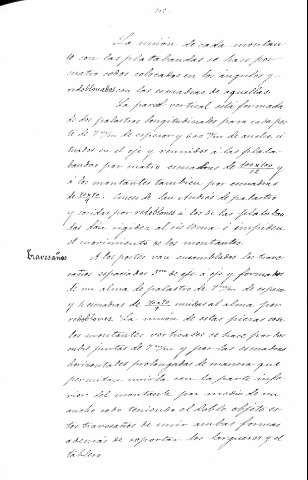 La unión de cada montan-
te con las platabandas se hace por
cuatro codos colocados en los ángulos y
redoblonados con las escuadras de aquellas.
La pared vertical está formada
de dos palastros longitudinales para cada par
te de 7 m/m de espesor y 600 m/m de ancho, si
tuados en el eje y reunidos á las plata
bandas por cuatro escuadras de 100x100/12 y
á los montantes tambien por escuadras
de Cruces de San Andrés de palastro
y cosidas por redoblones á los de las plataban
das dan rigidez al sistema é impiden
el movimiento de los montantes.
Travesaños
A los postes van ensamblados los trave
saños espaciados de eje á eje y formados
de un alma de palastro de 7 m/m de espesor
y 4 escuadras de unidas al alma por
redoblones. La unión de estas piezas con
los montantes verticales se hace por dos
cubre juntas de 7 m/m y por las escuadras
horizontales prolongadas de manera que
permitan unirla con la parte infe
rior del montante por medio de un
ancho codo teniendo el doble objeto es
tos travesaños de unir ambas formas
además de soportar los largueros y el
tablero